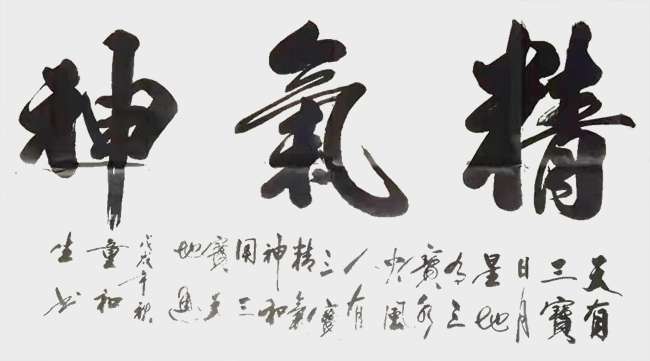 精氣神
天有
三寶
日月
星地
有三
寶水
火風
人有
三寶
精氣
神和
用三
寶天
地通
戊戌年秋
重和
生书